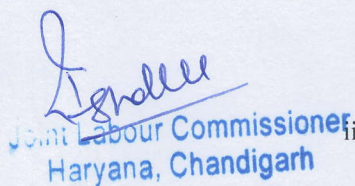 Joint Labour Commissioner
Haryana, Chandigarh